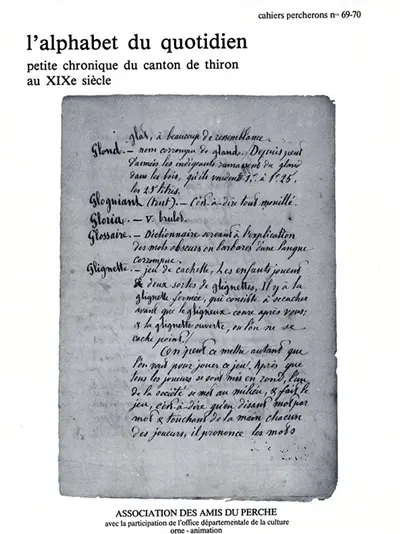 cahiers percherons nos 69-70
l'alphabet du quotidien
petite chronique du canton de thiron
au XIXe siècle
glas, à beaucoup de ressemblance.
Glond. — nom corrompu de gland. Depuis peu
d'années les indigents ramassent du gland
dans les bois, qu'ils vendent 1f, à 1f25,
les 25 litres.
Gloguiant (tout). — C'est-à-dire tout mouillé.
Gloria. — V. brulot.
Glossaire. — Dictionnaire servant à l'explication
des mots obscurs ou barbares d'une langue
corrompue.
Glignette. — jeu de cachette, Les enfants jouent
à deux sortes de glignettes, Il y a la
glignette fermée, qui consiste à se cacher
avant que le gligneux coure après vous;
& la glignette ouverte, où l'on ne se
cache point.
On peut se mettre autant que
l'on veut pour jouer ce jeu. Après que
tous les joueurs se sont mis en rond, l'un
de la société se met au milieu, & fait le
jeu, c'est-à-dire qu'en disant mot par
mot & touchant de la main chacun
des joueurs, il prononce les mots
ASSOCIATION DES AMIS DU PERCHE
avec la participation de l'office départementale de la culture
orne - animation